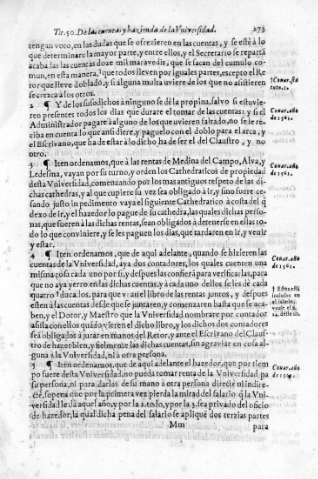 Tit. 50. De las cuentas y hazienda de la Vniversidad. 273
tengan voto, en las dudas que se ofrezieren en las cuentas, y se estè à lo
que determinare la mayor parte, y entre ellos, y el Secretario se reparta
acaba las las cuentas doze mil maravedis, que se sacan del cumulo co-
mun, en esta manera, que todos lleven por iguales partes, excepto el Re
tor que lleve doblado, y si alguna malta uviere de los que no assistieren
se
2 ¶ Y de los susodichos à ninguno se dè la propina, salvo si estuvie-
ren presentes todos los dias que durare el tomar de las cuentas: y si el
Administrador pagare à alguno de los que uvieren faltado, no se le re-
ciba en cuenta lo que assi diere, y paguelo con el doblo para el arca, y
el Escrivano, que ha de estar à lo dicho ha de ser el del Claustro, y no
otro.
3 ¶ Iten ordenamos, que à las rentas de Medina del Campo, Alva, y
Ledesma, vayan por su turno, y orden los Cathedraticos de propiedad
desta Vniversidad, començando por los mas antiguos respeto de las di-
chas cathedras, y al que cupiere su vez sea obligado à ir, y sino fuere ce-
sando justo impedimento vaya el siguiente Cathedratico à costa del q̃
dexo de ir, y el hazedor lo pague de su cathedra, las quales dichas perso-
nas, que fueren à las dichas rentas, sean obligados à detenerse en ellas to-
do lo que conviniere, y se les paguen los dias, que tardaren en ir, y venir
y estar.
4 ¶ Iten ordenamos, que de aqui adelante, quando se hizieren las
cuentas de la Vniversidad, aya dos contadores, los quales cuenten una
misma cosa cada uno por si, y despues las confiera para verificarlas, para
que no aya yerro en las dichas cuentas, y à cada uno dellos se les dè cada
quatro ducados, para que ... el libro de las rentas juntos, y despues
esten à las cuentas desde que se juntaren, y comenzaren hasta que se aca-
ben, y el Dotor, y Maestro que la Vniversidad nombrare por contador
assista con ellos quando vieren el dicho libro, y los dichos dos contadores
seã obligados à jurar en manos del Retor, y ante el Escrivano del Claus
tro de hazer bien, y fielmente las dichas cuentas, sin agraviar en cosa al-
guna à la Vniversidad, ni à otra persona.
5 ¶ Iten ordenamos, que de aqui adelante el hazedor, que por tiem
po fuere desta Vniversidad, no pueda tomar renta de la Vniversidad, pa
ra su persona, ni para darlas de su mano à otra persona directè ni indire-
ctè, so pena que por la primera vez pierda la mitad del salario q̃ la Vni-
versidad le dà aquel año, y por la 2. todo, y por la 3. sea privado del oficio
de hazedor, la qual dicha pena del salario se aplique dos terzias partes
Mm para
Const. año
de 1561.
Const. año
de 1561.
Const. año
de 1561.